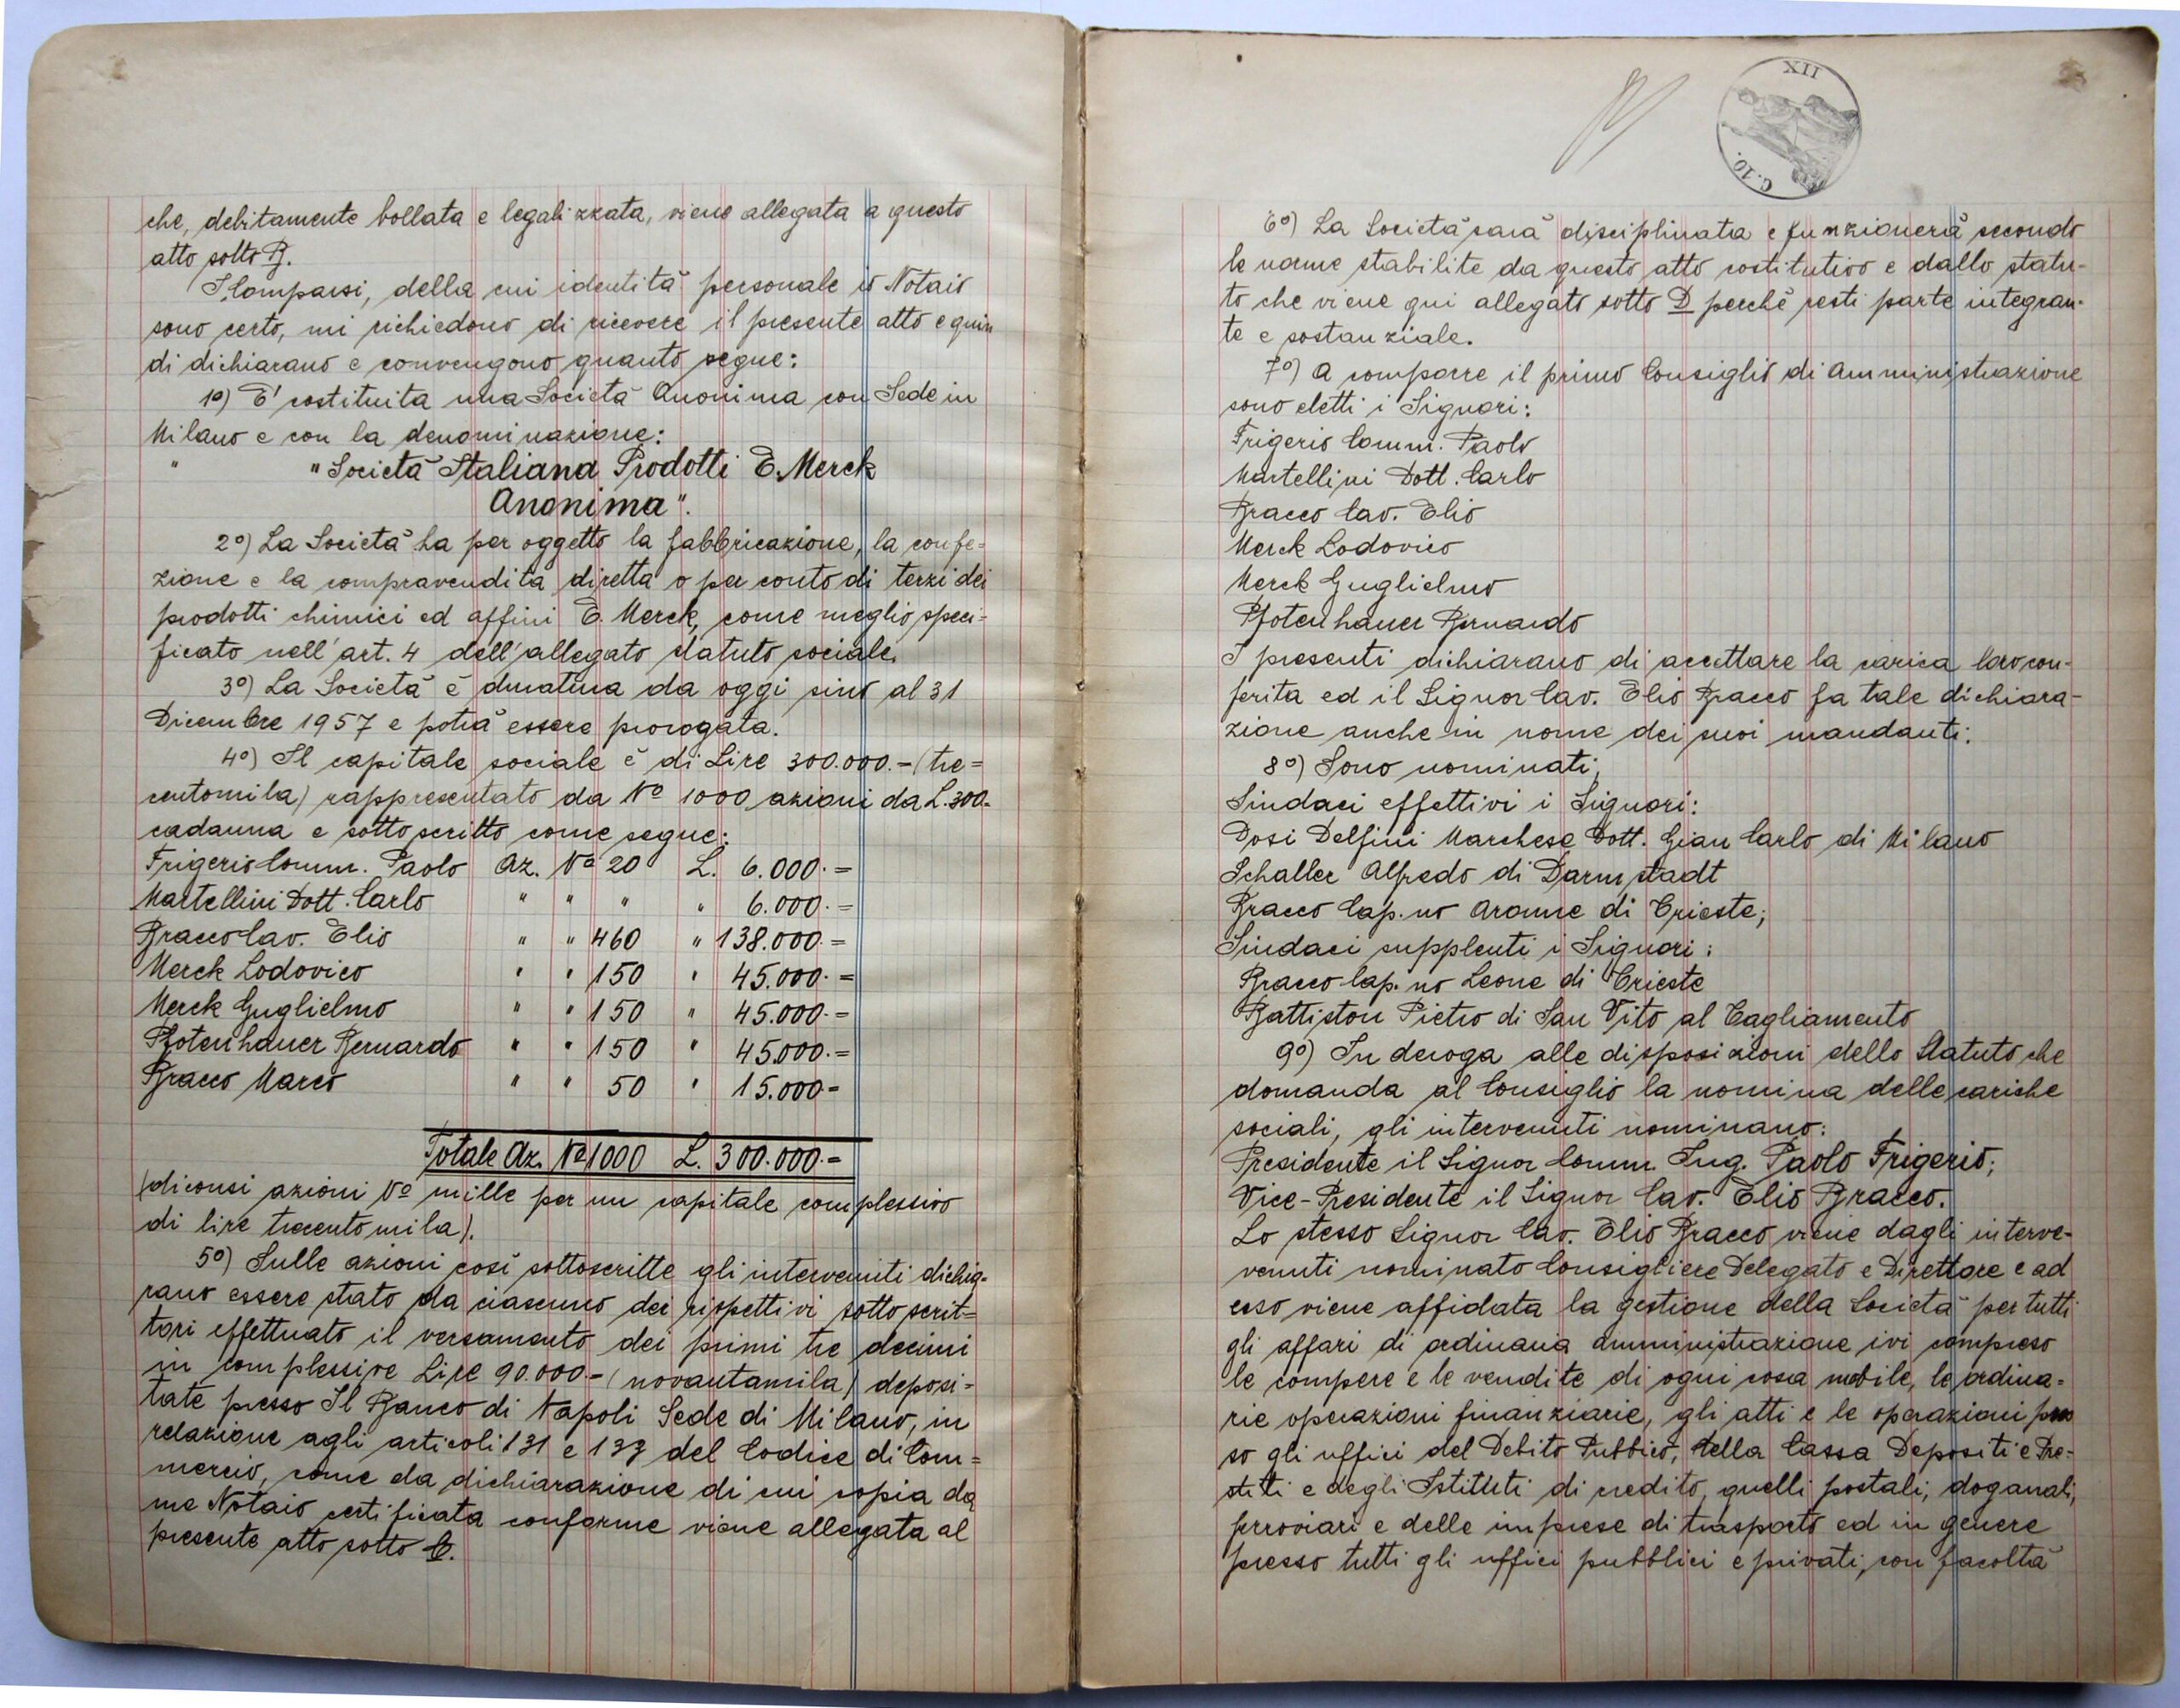 che, debitamente bollata e legalizzata, viene allegata a questo
atto sotto B.
I Comparsi, della cui identità personale io Notaio
sono certo, mi richiedono di ricevere il presente atto e quin
di dichiarano e convengono quanto segue:
1º) E' costituita una Società Anonima con Sede in
Milano e con la denominazione:
" "Società Italiana Prodotti E. Merck
Anonima".
2º) La Società ha per oggetto la fabbricazione, la confe=
zione e la compravendita diretta o per conto di terzi dei
prodotti chimici ed affini E. Merck, come meglio speci=
ficato nell'art. 4 dell'allegato statuto sociale.
3º) La Società è duratura da oggi sino al 31
Dicembre 1957 e potrà essere prorogata.
4º) Il capitale sociale è di Lire 300.000.- (tre=
centomila) rappresentato da Nº 1000 azioni da L.300.-
cadauna e sottoscritto come segue:
Frigerio Comm. Paolo Az. Nº 20 L. 6.000.=
Martellini Dott. Carlo " " " " 6.000.=
Bracco Cav. Elio " " 460 " 138.000.=
Merck Lodovico " " 150 " 45.000.=
Merck Guglielmo " " 150 " 45.000.=
Pfotenhauer Bernardo " " 150 " 45.000.=
Bracco Marco " " 50 " 15.000=
Totale Az. Nº 1000 L. 300.000.=
(diconsi azioni Nº mille per un capitale complessivo
di lire trecentomila).
5º) Sulle azioni così sottoscritte gli intervenuti dichia=
rano essere stato da ciascuno dei rispettivi sottoscrit=
tori effettuato il versamento dei primi tre decimi
in complessive Lire 90.000.- (novantamila) deposi=
tate presso Il Banco di Napoli Sede di Milano, in
relazione agli articoli 131 e 133 del Codice di Com=
mercio, come da dichiarazione di cui copia da
me Notaio certificata conforme viene allegata al
presente atto sotto C.
XII
C.10.
6º) La Società sarà disciplinata e funzionerà secondo
le norme stabilite da questo atto costitutivo e dallo statu-
to che viene qui allegato sotto D perchè resti parte integran-
te e sostanziale.
7º) A comporre il primo Consiglio di Amministrazione
sono eletti i Signori:
Frigerio Comm. Paolo
Martellini Dott. Carlo
Bracco Cav. Elio
Merck Lodovico
Merck Guglielmo
Pfotenhauer Bernardo
I presenti dichiarano di accettare la carica loro con-
ferita ed il Signor Cav. Elio Bracco fa tale dichiara-
zione anche in nome dei suoi mandanti.
8º) Sono nominati,
Sindaci effettivi i Signori:
Dosi Delfini Marchese Dott. Gian Carlo di Milano
Schaller Alfredo di Darmstadt
Bracco Cap.no Aronne di Trieste;
Sindaci supplenti i Signori:
Bracco Cap.no Leone di Trieste
Battiston Pietro di San Vito al Tagliamento
9º) In deroga alle disposizioni dello Statuto che
domanda al Consiglio la nomina delle cariche
sociali, gli intervenuti nominano:
Presidente il Signor Comm. Ing. Paolo Frigerio;
Vice-Presidente il Signor Cav. Elio Bracco.
Lo stesso Signor Cav. Elio Bracco viene dagli interve-
venuti nominato Consigliere Delegato e Direttore e ad
esso viene affidata la gestione della Società per tutti
gli affari di ordinaria amministrazione ivi compreso
le compere e le vendite di ogni cosa mobile, le ordina=
rie operazioni finanziarie, gli atti e le operazioni pres
so gli uffici del Debito Pubblico, della Cassa Depositi e Pre=
stiti e degli Istituti di credito, quelli postali, doganali,
ferroviari e delle imprese di trasporto ed in genere
presso tutti gli uffici pubblici e privati, con facoltà